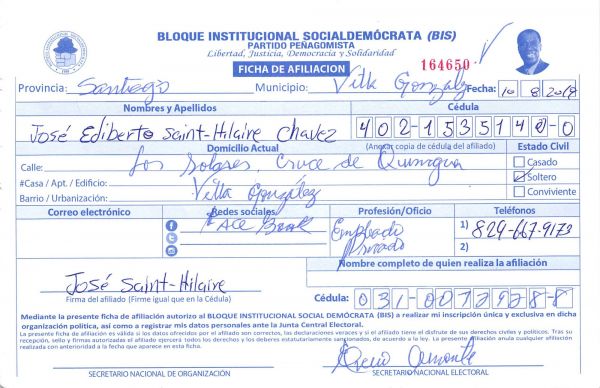 BLOQUE INSTITUCIONAL SOCIALDEMÓCRATA (BIS)
PARTIDO PEÑAGOMISTA
Libertad, Justicia, Democracia y Solidaridad
FICHA DE AFILIACION
164650
Provincia: Santiago Municipio: Villa González Fecha: 10 8 2018
Nombres y Apellidos Cédula
José Ediberto Saint-Hilaire Chavez 402-1535140-0
Domicilio Actual (Anexar copia de cédula del afiliado) Estado Civil
Calle: Los Solares, Cruce de Quinigua Casado
#Casa / Apt. / Edificio: Soltero
Barrio / Urbanización: Villa González Conviviente
Correo electrónico Redes sociales Profesión/Oficio Teléfonos
Face Book Empleado Privado 1) 829-667-9173
2)
Nombre completo de quien realiza la afiliación
José Saint-Hilaire
Firma del afiliado (Firme igual que en la Cédula) Cédula: 031-0072928-8
Mediante la presente ficha de afiliación autorizo al BLOQUE INSTITUCIONAL SOCIAL DEMÓCRATA (BIS) a realizar mi inscripción única y exclusiva en dicha
organización política, así como a registrar mis datos personales ante la Junta Central Electoral.
La presente ficha de afiliación es válida si los datos ofrecidos por el afiliado son correctos, las declaraciones veraces y si el afiliado tiene el disfrute de sus derechos civiles y políticos. Tras su
recepción, sello y firmas autorizadas el afiliado ejercerá todos los derechos y los deberes estatutariamente sancionados, de acuerdo a la ley. La presente afiliación anula cualquier afiliación
realizada con anterioridad a la fecha que aparece en esta ficha.
SECRETARIO NACIONAL DE ORGANIZACIÓN SECRETARIO NACIONAL ELECTORAL